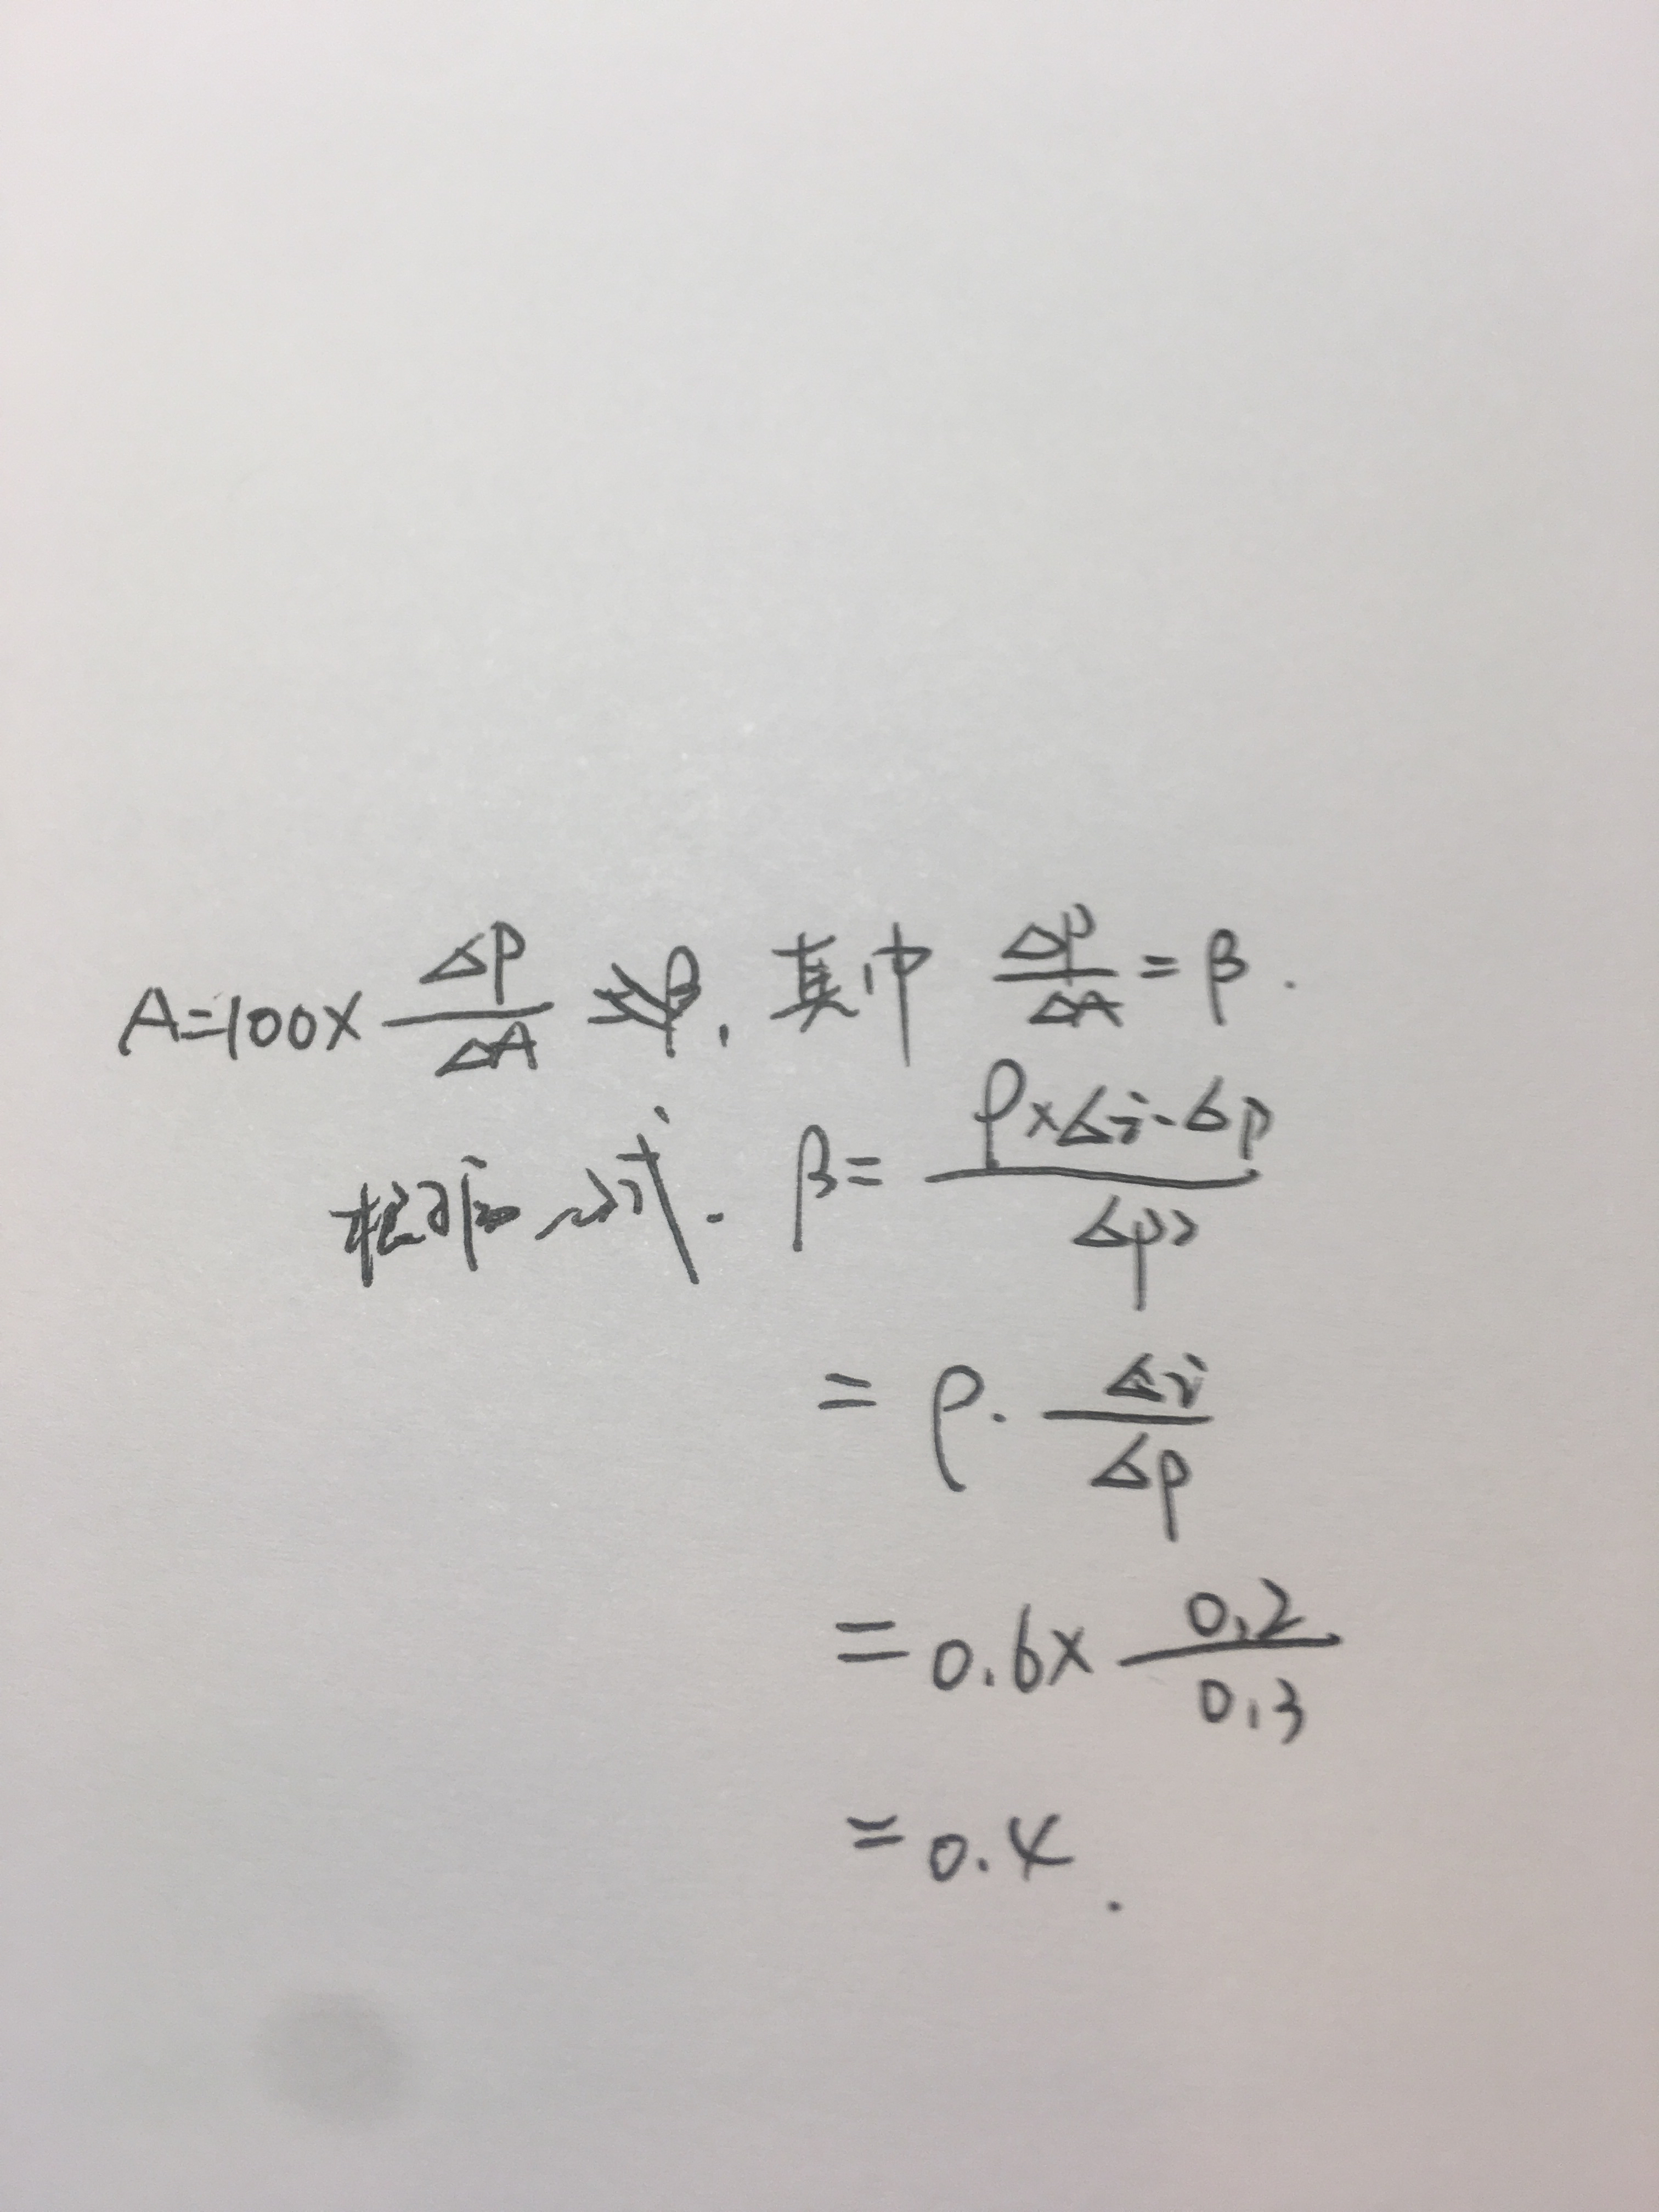 A=100× ΔP/ΔA, 其中 ΔP/ΔA = β.
根据公式. β= ρ×Δi·Δp/Δp²
= ρ· Δi/Δp
= 0.6× 0.2/0.3
= 0.4.